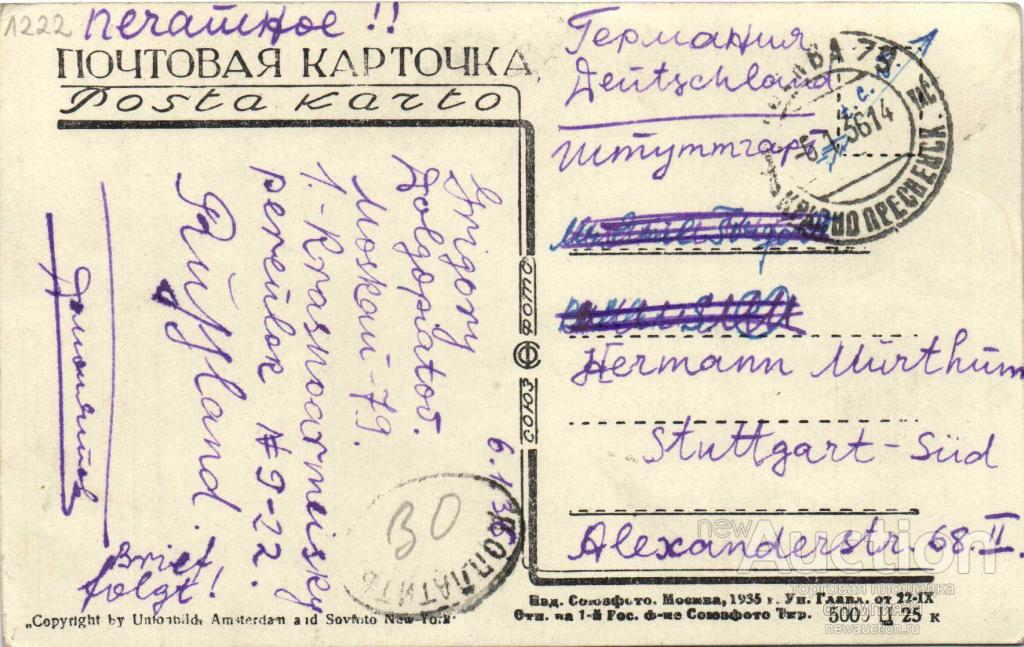 1222
печатное!!
ПОЧТОВАЯ КАРТОЧКА
Posta karto
Grigory
Dolgopiatov.
Moskau-79.
1.-Krasnoarmeisky
pereulok № 9-22.
Rußland.
Brief
folgt!
6.1.36
30
ДОПЛАТИТЬ
СОЮЗ
ФОТО
Германия
Deutschland
Штуттгарт
Hermann Mürthum
Stuttgart-Süd
Alexanderstr. 68. II.
МОСКВА 79
-6.1.3614
КРАСНО ПРЕСНЕНСК.
Изд. Союзфото. Москва, 1935 г. Уп. Глава. от 27-IX
Отп. на 1-й Рос. ф-ке Союзфото Тир. 5000 Ц 25 к
„Copyright by Unionbild, Amsterdam and Sovfoto New-York"
newAuction
торговая площадка
newauction.ru